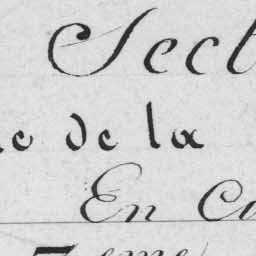 Sect
e de la
En Co
7eme